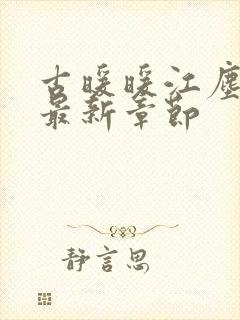 古暖暖江塵
最新章節
靜言思